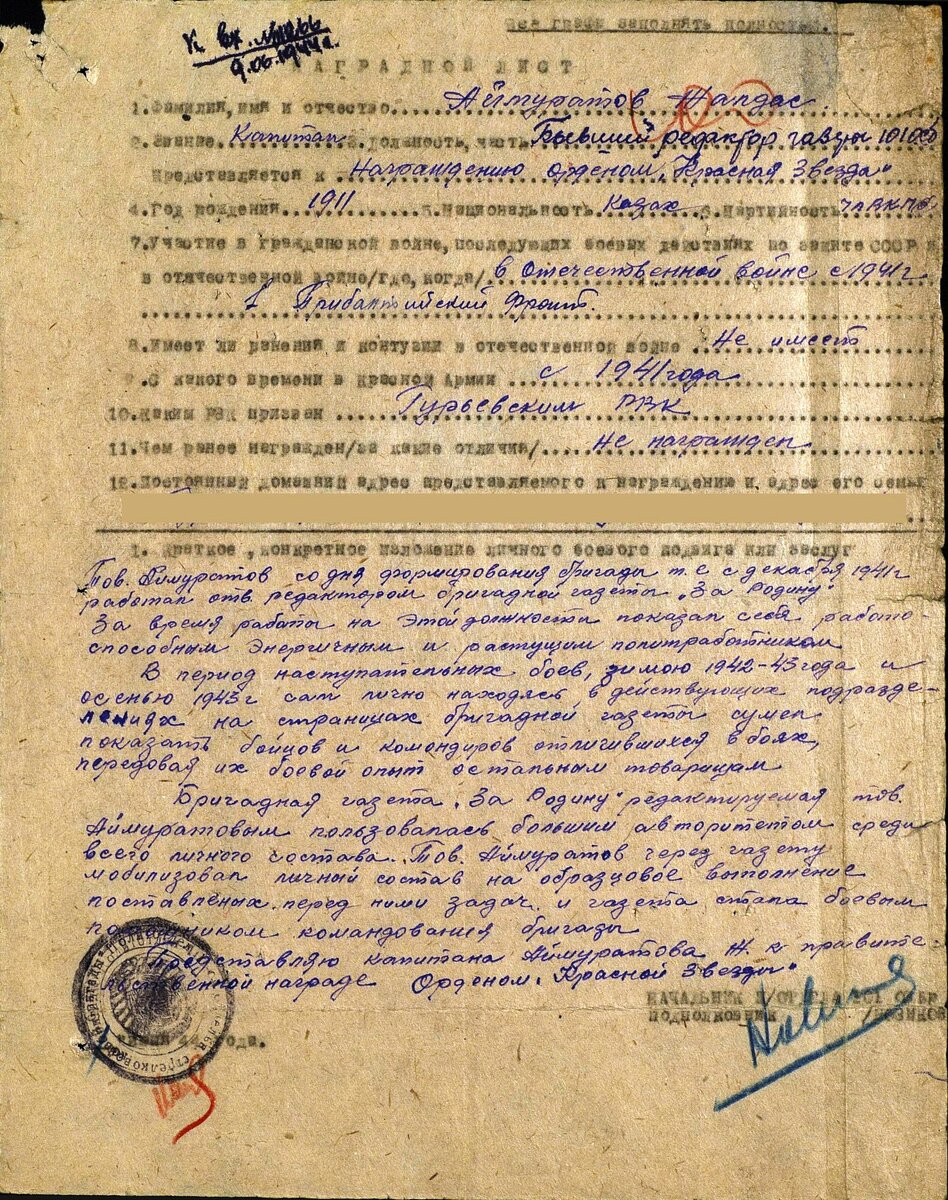 Все графы заполнять полностью.
к вх.
9.06.1944г.
НАГРАДНОЙ ЛИСТ
1. Фамилия, имя и отчество.... Аймуратов Жалдас
2. Звание Капитан 3. Должность, часть Бывший редактор газеты 101 осб
Представляется к Награждению орденом „Красная Звезда"
4. Год рождения...1911.....5. Национальность Казах 6. Партийность
7. Участие в гражданской войне, последующих боевых действиях по защите СССР и
в отечественной войне/где, когда/ в Отечественной войне с 1941г
1 Прибалтийский Фронт.
8. Имеет ли ранения и контузии в отечественной войне ..Не имеет
9. С какого времени в Красной Армии ... с 1941 года
10. Каким РВК призван ... Гурьевским РВК
11. Чем ранее награжден/за какие отличия/.... Не награжден
12. Постоянный домашний адрес представляемого к награждению и адрес его семьи
1. Краткое, конкретное изложение личного боевого подвига или заслуг
Тов. Аймуратов со дня формирования бригады т.е с декабря 1941г
работал отв. редактором бригадной газеты „За Родину"
За время работы на этой должности показал себя работо-
способным энергичным и растущим политработником
В период наступательных боев, зимою 1942-43 года и
осенью 1943г сам лично находясь в действующих подразде-
лениях на страницах бригадной газеты сумел
показать бойцов и командиров отличившихся в боях,
передовая их боевой опыт остальным товарищам
Бригадная газета „За Родину" редактируемая тов.
Аймуратовым пользовалась большим авторитетом среди
всего личного состава. Тов. Аймуратов через газету
мобилизовал личный состав на образцовое выполнение
поставленых перед ними задач. и газета стала боевым
помощником командования бригады
Представляю капитана Аймуратова Ж. к правите-
льственной награде Орденом „Красной Звезды"
НАЧАЛЬНИК
ПОДПОЛКОВНИК
44 года.